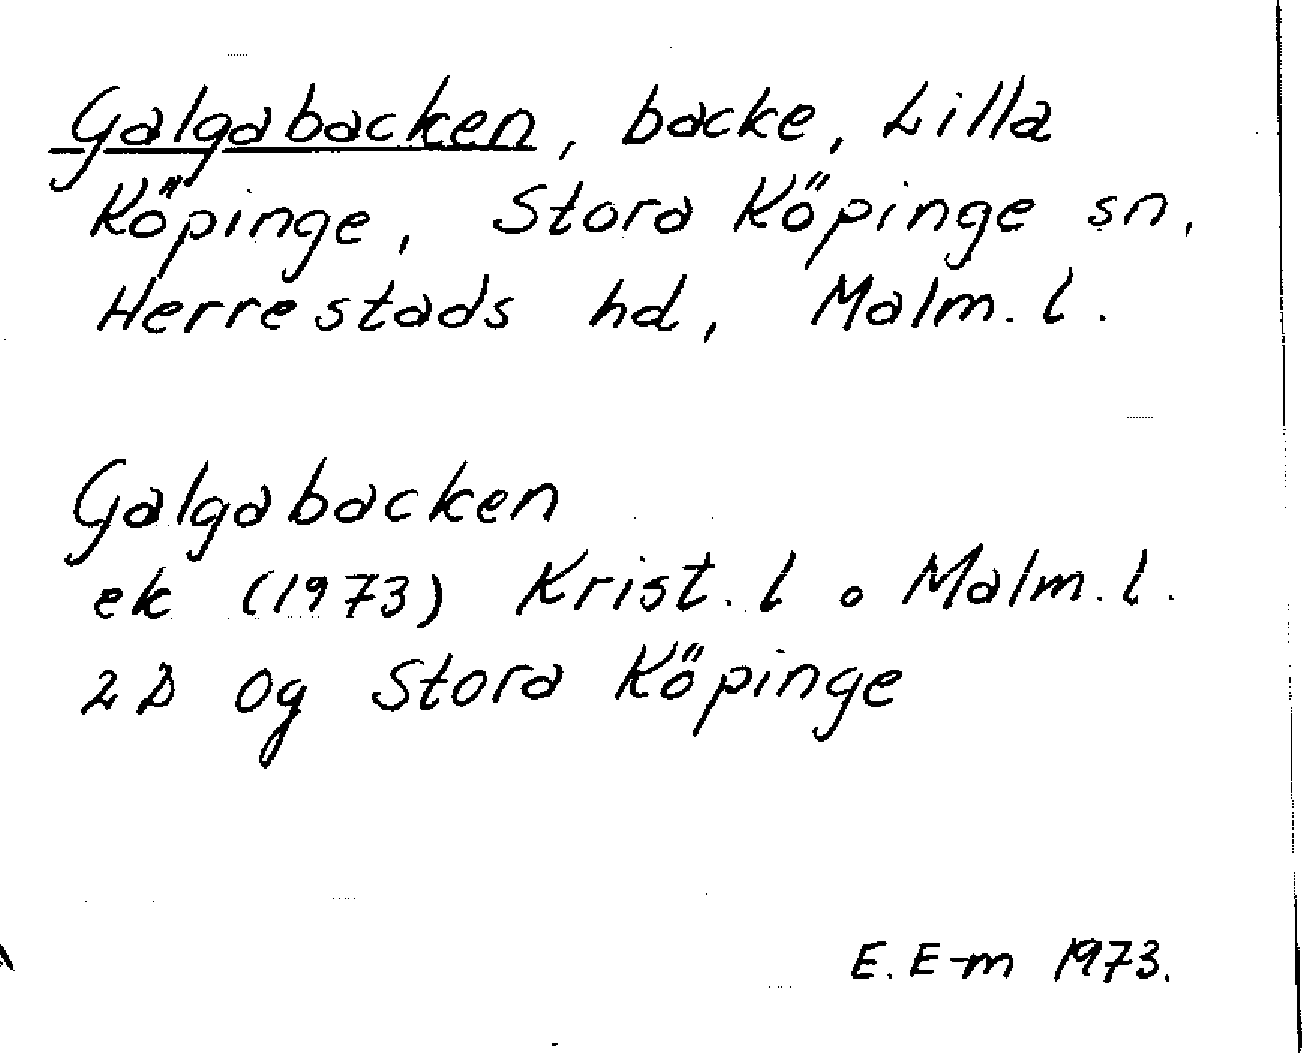 Galgabacken, backe, Lilla
Köpinge, Stora Köpinge sn,
Herrestads hd, Malm. l.
Galgabacken
ek (1973) Krist. l o Malm. l.
2D 0g Stora Köpinge
E. E-m 1973.